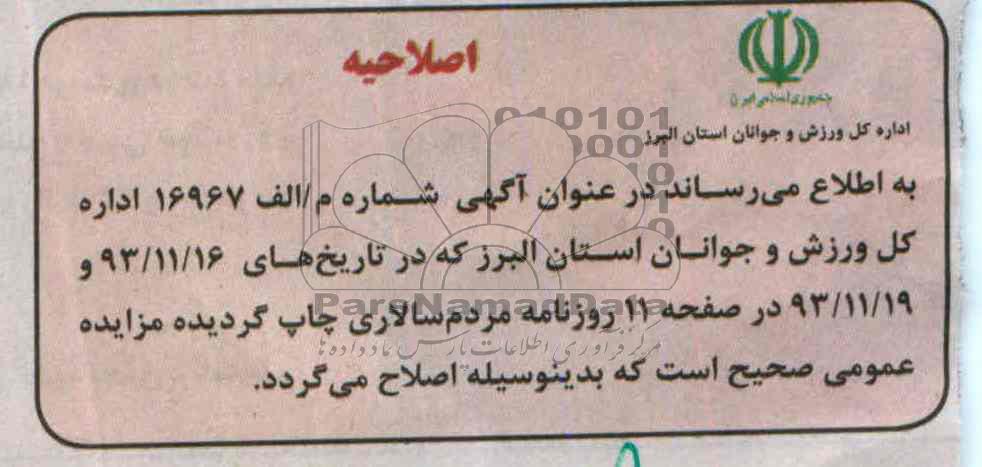 اصلاحیه
جمهوری اسلامی ایران
اداره کل ورزش و جوانان استان البرز
به اطلاع می‌رساند در عنوان آگهی شماره م/الف ۱۶۹۶۷ اداره
کل ورزش و جوانان استان البرز که در تاریخ‌های ۹۳/۱۱/۱۶ و
۹۳/۱۱/۱۹ در صفحه ۱۱ روزنامه مردم‌سالاری چاپ گردیده مزایده
عمومی صحیح است که بدینوسیله اصلاح می‌گردد.
ParsNamadData
مرکز فرآوری اطلاعات پارس نماد داده ها